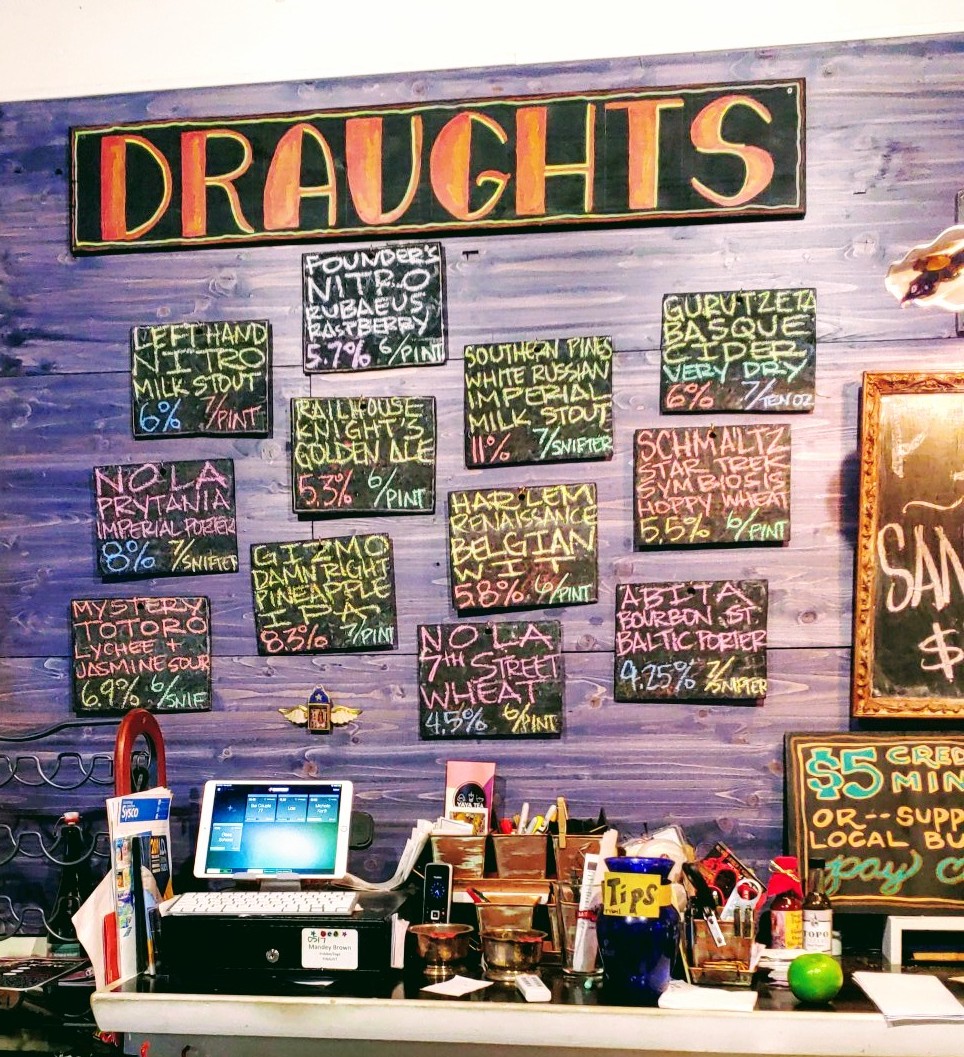 DRAUGHTS
FOUNDER'S
NITRO
RUBAEUS
RASPBERRY
5.7% 6/PINT
LEFT HAND
NITRO
MILK STOUT
6% 7/PINT
SOUTHERN PINES
WHITE RUSSIAN
IMPERIAL
MILK STOUT
11% 7/SNIFTER
GURUTZETA
BASQUE
CIDER
VERY DRY
6% 7/TEN OZ
RAILHOUSE
KNIGHT'S
GOLDEN ALE
5.3% 6/PINT
SCHMALTZ
STAR TREK
SYMBIOSIS
HOPPY WHEAT
5.5% 6/PINT
NOLA
PRYTANIA
IMPERIAL PORTER
8% 7/SNIFTER
HARLEM
RENAISSANCE
BELGIAN
WIT
5.8% 6/PINT
GIZMO
DAMN RIGHT
PINEAPPLE
IPA
8.3% 7/PINT
ABITA
BOURBON ST.
BALTIC PORTER
9.25% 7/SNIFTER
MYSTERY
TOTORO
LYCHEE +
JASMINE SOUR
6.9% 6/SNIF
NOLA
7TH STREET
WHEAT
4.5% 6/PINT
SAN
$
$5 CRED
MIN
OR--SUPP
LOCAL BU
pay
Sysco
TIPS
TOPO
0517
Mandey Brown